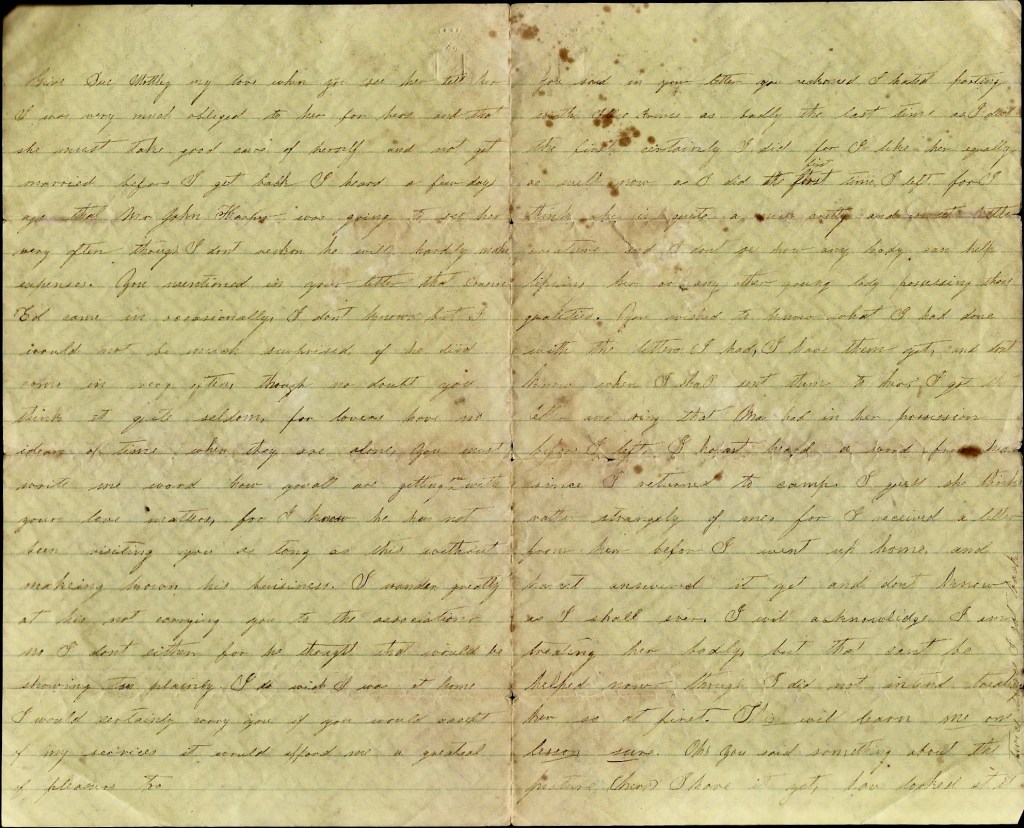 Give Sue Motley my love when you see her tell her
I was very much obliged to her for hers and that
she must take good care of herself and not get
married before I get back I heard a few days
ago that Mr John Harper was going to see her
very often though I dont reckon he will hardly make
expenses. You mentioned in your letter that
Ed came in occasionally, I don't know but I
would not be much surprised if he did
come in very often, though no doubt you
think it quite seldom, for lovers have no
ideam of time when they are alone, You must
write me word how you all are getting on with
your love matters, for I know he has not
been visiting you as long as this without
making known his buisiness. I wonder greatly
at his not carrying you to the association
no I dont either for he thought that would be
showing too plainly I do wish I was at home
I would certainly carry you if you would accept
of my services it would afford me a greateal
of pleasure to
You said in your letter you reckoned I hated parting
with Miss as badly the last time as I did
the first, certainly I did for I like her equally
as well now as I did the first time I left. for I
think she is quite a nice pretty and sweet little
creature and I dont see how any body can help
her or any other young lady possessing those
qualities. You wished to know what I had done
with the letters I had, I have them yet, and dont
know when I shall sent them to her, I got the
and ring that Ma had in her possession
before I left, I havent heard a word from her
since I returned to camp. I guess she thinks
rather strangely of me, for I received a letter
from her before I went up home, and
havent answered it yet and dont know
as I shall ever, I will acknowlidge I am
treating her badly, but that cant be
helped now though I did not intend treating
her so at first. will learn me one
lesson sure. Oh! you said something about the
picture (hers) I have it yet, have looked at it